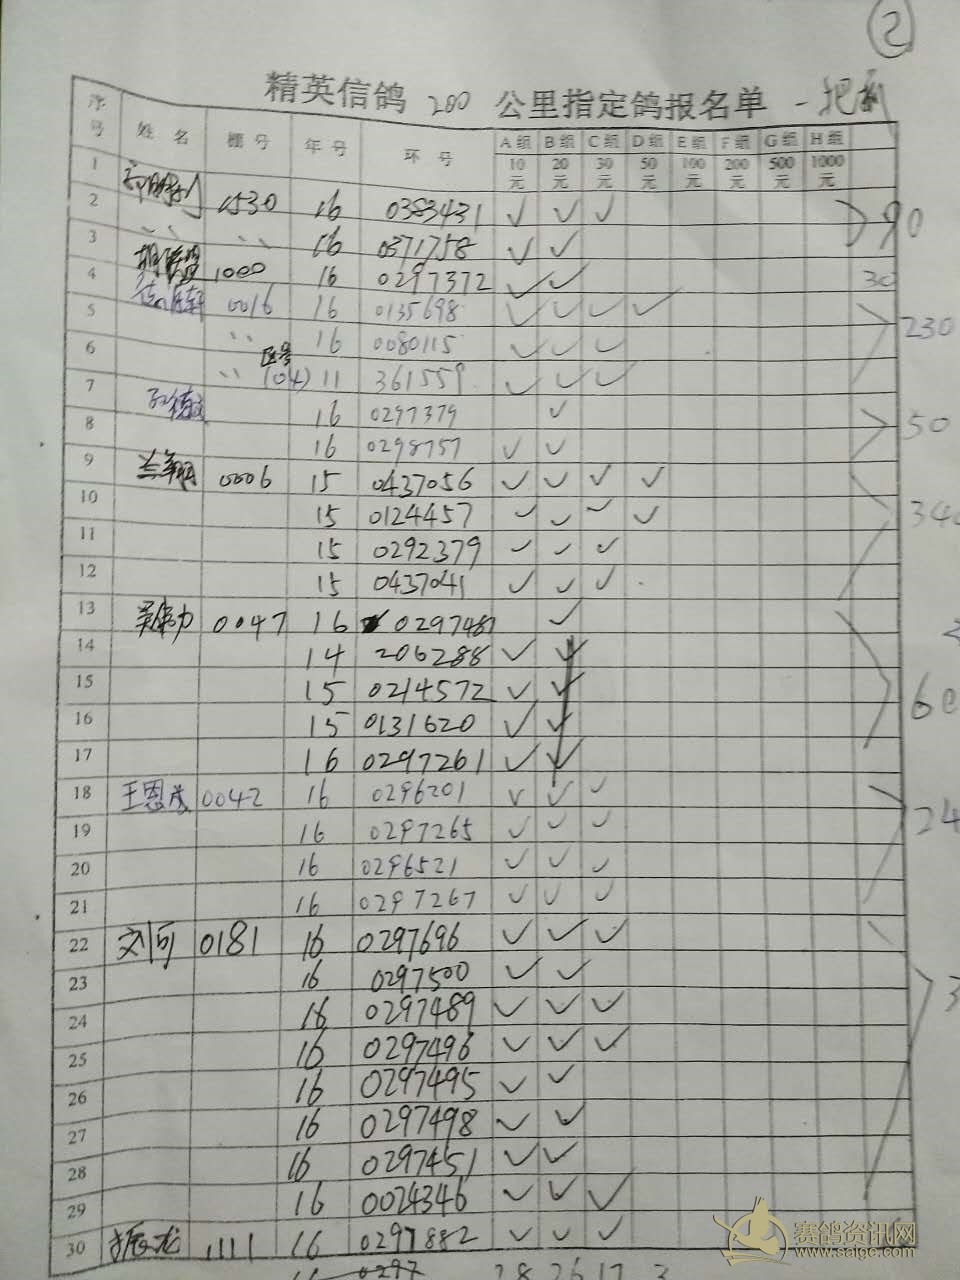 2
精英信鸽 280 公里指定鸽报名单 一把
序号 姓名 棚号 年号 环号 A组 B组 C组 D组 E组 F组 G组 H组
10元 20元 30元 50元 100元 200元 500元 1000元
1
2 1530 16 0383431 ✓ ✓ ✓ 90
3 、、 、、 16 0371758 ✓ ✓
4 1000 16 0297372 ✓ ✓ 30
5 0016 16 0135698 ✓ ✓ ✓ ✓ 230
6 、、 16 0080115 ✓ ✓ ✓
区号
7 、、 (04) 11 361559 ✓ ✓ ✓
16 0297379 ✓
8 16 0298757 ✓ ✓ 50
9 0006 15 0437056 ✓ ✓ ✓ ✓
10 15 0124457 ✓ ✓ ✓ ✓ 340
11 15 0292379 ✓ ✓ ✓
12 15 0437041 ✓ ✓ ✓
13 0047 16 0297487 ✓
14 14 206288 ✓ ✓
15 15 0214572 ✓ ✓ 60
16 15 0131620 ✓ ✓
17 16 0297261 ✓ ✓
18 王恩茂 0042 16 0296201 ✓ ✓ ✓
19 16 0297265 ✓ ✓ ✓ 24
20 16 0296521 ✓ ✓ ✓
21 16 0297267 ✓ ✓ ✓
22 刘可 0181 16 0297696 ✓ ✓ ✓
23 16 0297500 ✓ ✓ 3
24 16 0297489 ✓ ✓ ✓
25 16 0297496 ✓ ✓ ✓
26 16 0297495 ✓ ✓
27 16 0297498 ✓ ✓
28 16 0297451 ✓ ✓
29 16 0024346 ✓ ✓ ✓
30 振龙 1111 16 0297882 ✓ ✓ ✓
16 0297 28 26 17 3
赛鸽资讯网
www.saigc.com